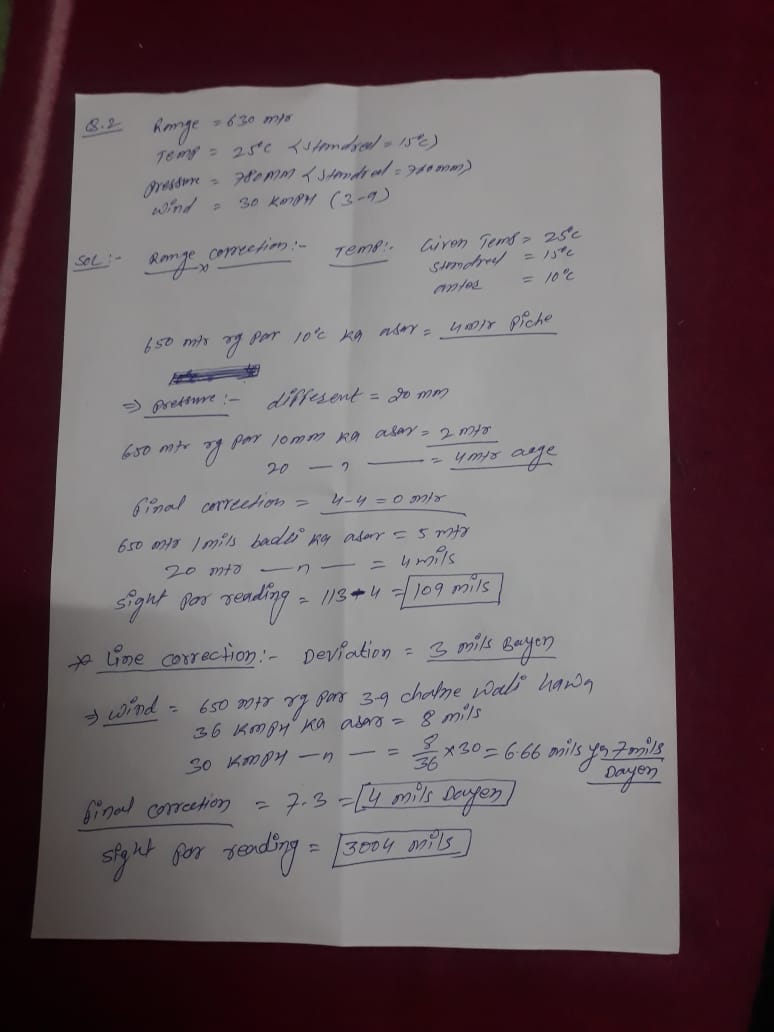 Q.2 Range = 630 mtr
Temp = 25°C (Standred = 15°C)
Pressure = 780MM (Standred = 760mm)
Wind = 30 KMPH (3-9)
Sol :- Range correction :- Temp :- Given Temp = 25°C
Standred = 15°C
antar = 10°C
650 mtr rg par 10°C ka asar = 4 mtr Piche
⇒ Pressure :- different = 20 mm
650 mtr rg par 10mm ka asar = 2 mtr
20 — " — = 4 mtr aage
final correction = 4-4 = 0 mtr
650 mtr 1 mils badli ka asar = 5 mtr
20 mtr — " — = 4 mils
Sight par reading = 113-4 = 109 mils
* Line correction :- Deviation = 3 mils Bayen
⇒ Wind = 650 mtr rg par 3-9 chalne wali hawa
36 KMPH ka asar = 8 mils
30 KMPH — " — = 8/36 × 30 = 6.66 mils ya 7 mils
Dayen
final correction = 7-3 = 4 mils Dayen
Sight par reading = 3004 mils